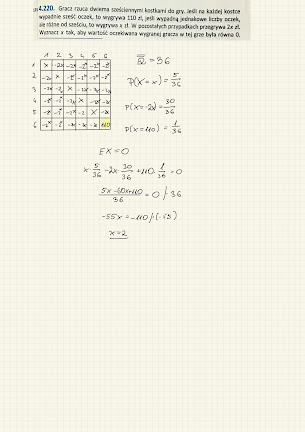 4.220. Gracz rzuca dwiema sześciennymi kostkami do gry. Jeśli na każdej kostce
wypadnie sześć oczek, to wygrywa 110 zł, jeśli wypadną jednakowe liczby oczek,
ale różne od sześciu, to wygrywa x zł. W pozostałych przypadkach przegrywa 2x zł.
Wyznacz x tak, aby wartość oczekiwana wygranej gracza w tej grze była równa 0.
1 2 3 4 5 6
1 x -2x -2x -2x -2x -2x
2 -2x x -2x -2x -2x -2x
3 -2x -2x x -2x -2x -2x
4 -2x -2x -2x x -2x -2x
5 -2x -2x -2x -2x x -2x
6 -2x -2x -2x -2x -2x 110
Ω = 36
P(X = x) = 5/36
P(X = -2x) = 30/36
P(X = 110) = 1/36
EX = 0
x · 5/36 - 2x · 30/36 + 110 · 1/36 = 0
5x - 60x + 110 / 36 = 0 / · 36
-55x = -110 / : (-55)
x = 2